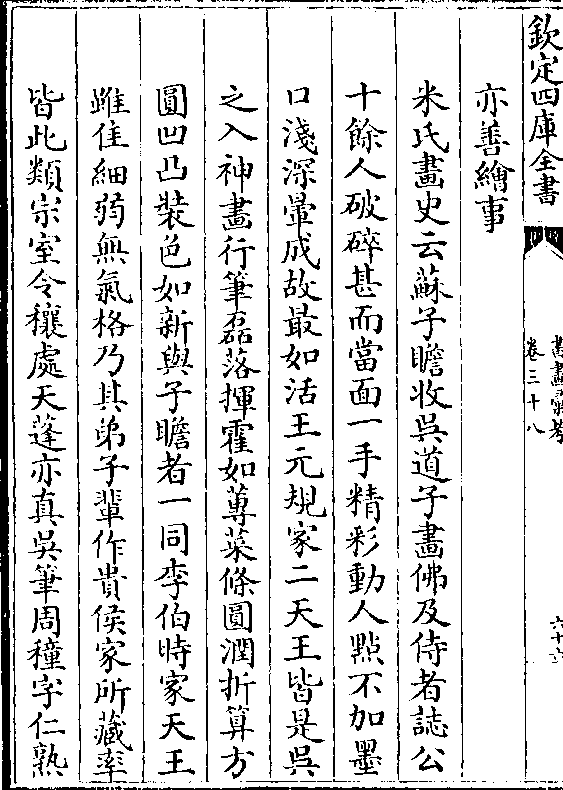 欽定四庫全書
書畫彙考
卷三十八
六十六
亦善繪事
米氏畫史云蘇子瞻收吳道子畫佛及侍者誌公
十餘人破碎甚而當面一手精彩動人點不加墨
口淺深暈成故最如活王元規家二天王皆是吳
之入神畫行筆磊落揮霍如蓴菜條圓潤折算方
圓凹凸裝色如新與子瞻者一同李伯時家天王
雖佳細弱無氣格乃其弟子輩作貴侯家所藏率
皆此類宗室令穰處天蓬亦真吳筆周穜字仁熟